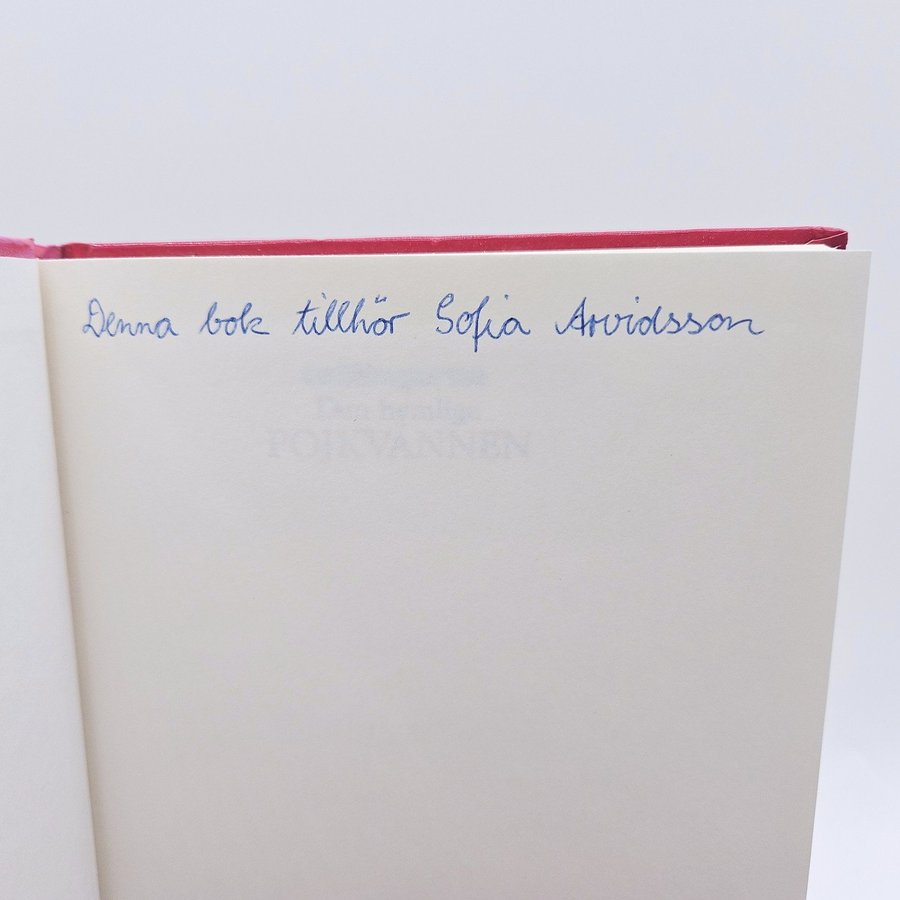 Denna bok tillhör Sofia Arvidsson
Den hemliga
POJKVÄNNEN